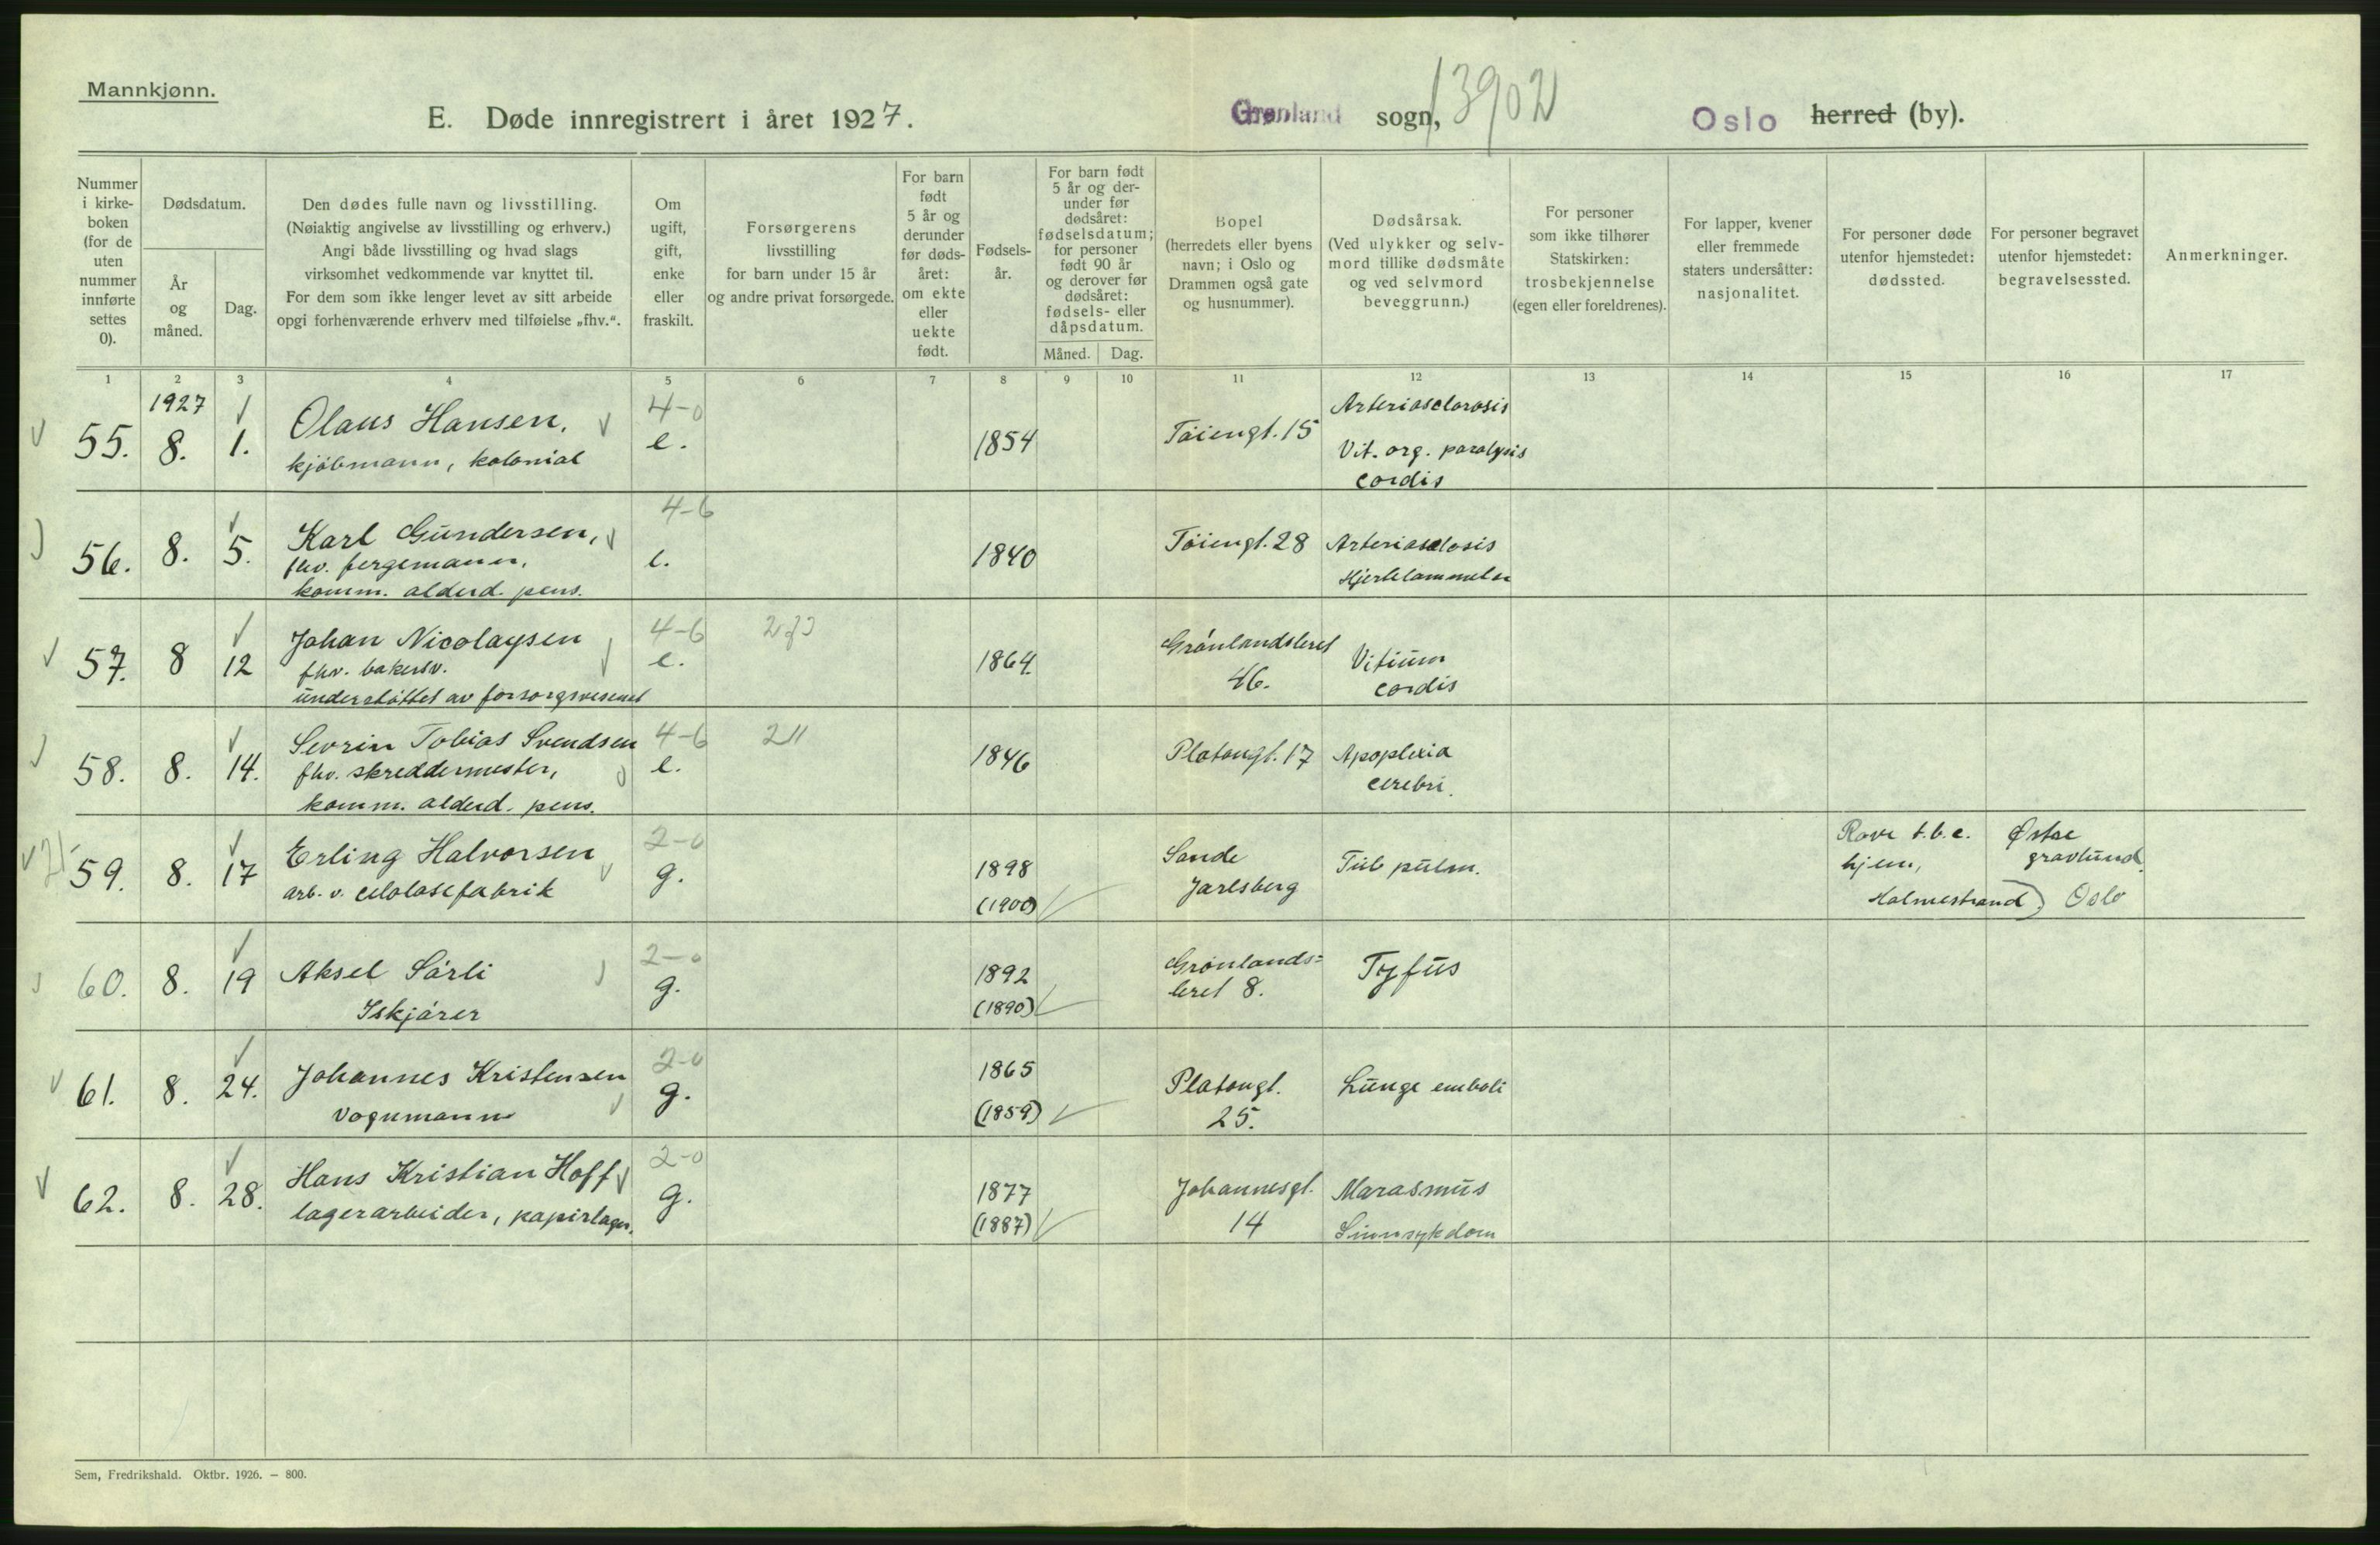 Mannkjønn.
E. Døde innregistrert i året 1927.
Grønland sogn, 13902 Oslo herred (by).
Nummer i kirke- boken (for de uten nummer innførte settes 0).
Dødsdatum.
År og måned.
Dag.
Den dødes fulle navn og livsstilling.
(Nøiaktig angivelse av livsstilling og erhverv.)
Angi både livsstilling og hvad slags
virksomhet vedkommende var knyttet til.
For dem som ikke lenger levet av sitt arbeide
opgi forhenværende erhverv med tilføielse „fhv.“.
Om ugift, gift, enke eller fraskilt.
Forsørgerens
livsstilling
for barn under 15 år
og andre privat forsørgede.
For barn født 5 år og derunder før døds- året: om ekte eller uekte født.
Fødsels- år.
For barn født 5 år og der- under før dødsåret: fødselsdatum; for personer født 90 år og derover før dødsåret: fødsels- eller dåpsdatum.
Måned. Dag.
Bopel
(herredets eller byens
navn; i Oslo og
Drammen også gate
og husnummer).
Dødsårsak.
(Ved ulykker og selv-
mord tillike dødsmåte
og ved selvmord
beveggrunn.)
For personer
som ikke tilhører
Statskirken:
trosbekjennelse
(egen eller foreldrenes).
For lapper, kvener
eller fremmede
staters undersåtter:
nasjonalitet.
For personer døde
utenfor hjemstedet:
dødssted.
For personer begravet
utenfor hjemstedet:
begravelsessted.
Anmerkninger.
1 2 3 4 5 6 7 8 9 10 11 12 13 14 15 16 17
1927
55. 8. 1. Olaus Hansen, 4-0 e. 1854 Tøiengt. 15 Arteriosclorosis
kjøbmann, kolonial Vit. org. paralysis
cordis
56. 8. 5. Karl Gundersen, 4-6 e. 1840 Tøiengt. 28 Arterioselosis
fhv. fergemann, Hjertelammelse
komm. alderd. pens.
57. 8 12 Johan Nicolaysen 4-6 e. 1864. Grønlandsleret Vitium
fhv. bakersv. 46. cordis
understøttet av forsorgsvesenet
58. 8. 14. Sevrin Tobias Svendsen 4-6 e. 211 1846 Platousgt. 17 Apoplexia
fhv. skreddermester, cerebri.
komm. alderd. pens.
59. 8. 17 Erling Halvorsen 2-0 g. 1898 Sande Tub pulm. Rove t.b.c. Østre
arb. v. celolosefabrik (1900) Jarlsberg hjem, gravlund.
Holmestrand) Oslo
60. 8. 19 Aksel Sørli 2-0 g. 1892 Grønlands- Tyfus
Iskjører (1890) leret 8.
61. 8. 24. Johannes Kristensen 2-0 g. 1865 Platousgt. Lunge emboli
vognmann (1859) 25.
62. 8. 28. Hans Kristian Hoff 2-0 g. 1877 Johannesgt. Marasmus
lagerarbeider, papirlager. (1887) 14 Sinnsykdom
Sem, Fredrikshald. Oktbr. 1926. – 800.